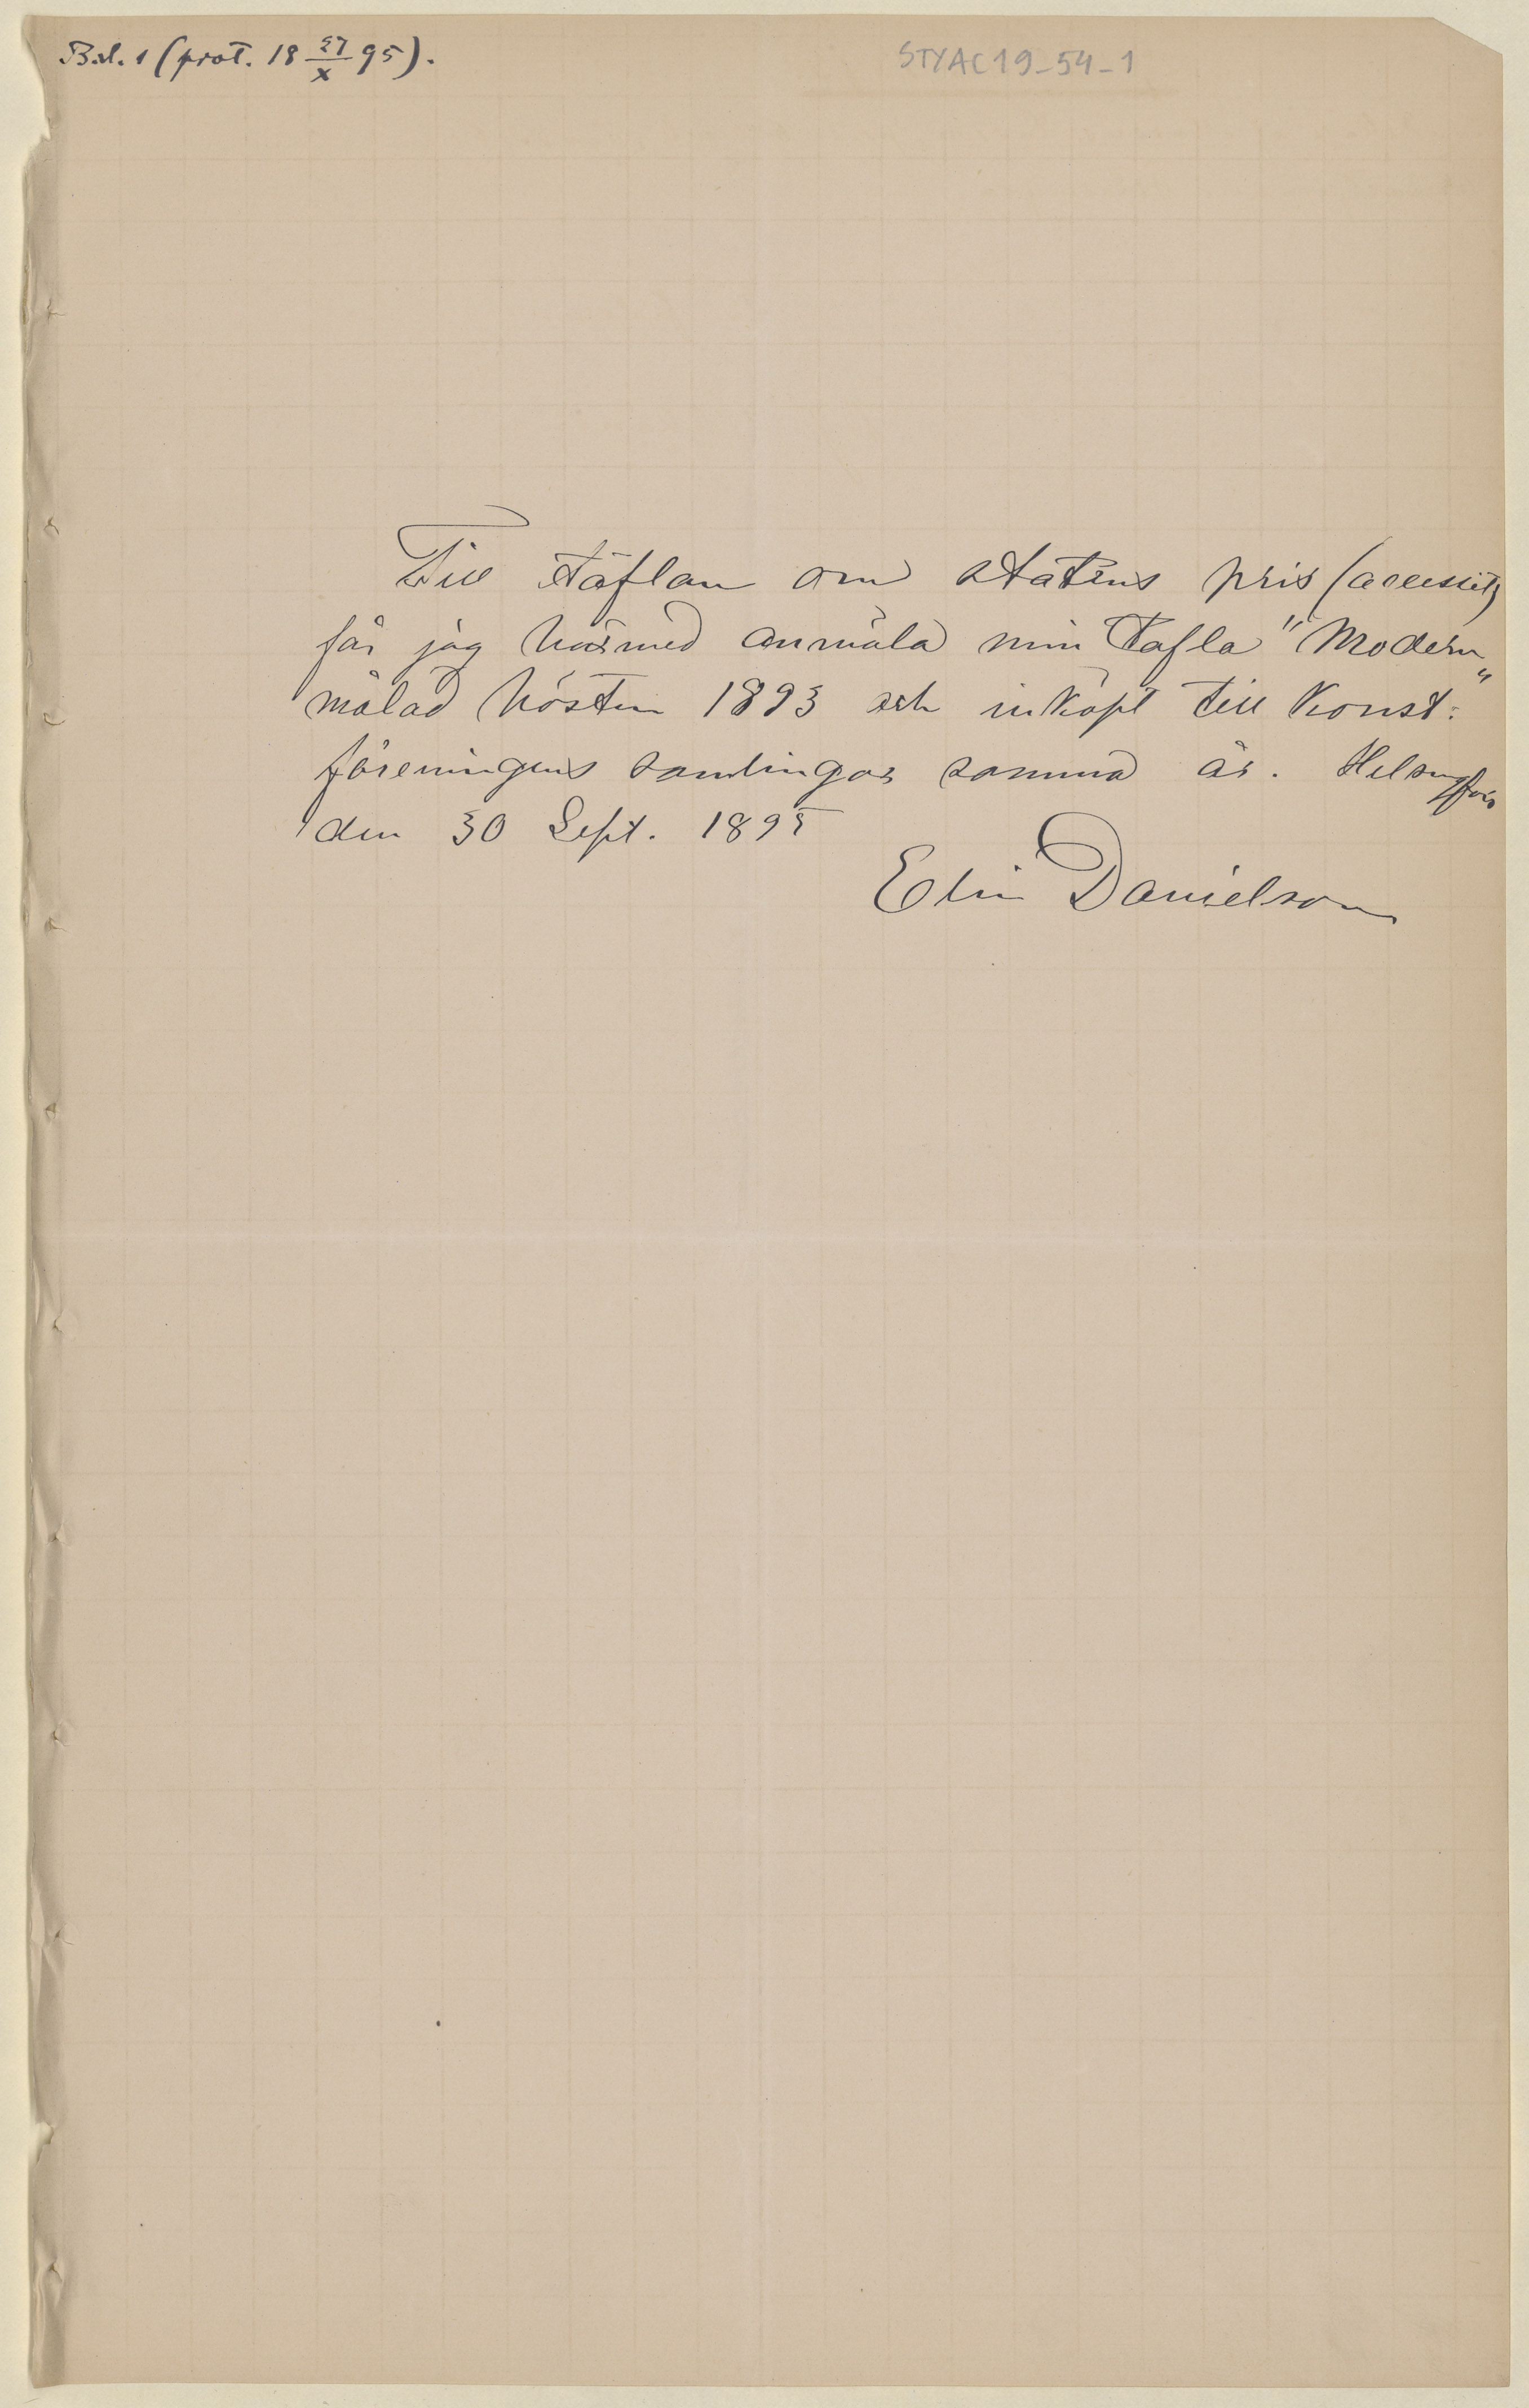 Bil. 1 (prot. 18 27/X 95).
STYAC19-54-1
Till täflan om statens pris (accessit)
får jag härmed anmäla min tafla "Modern"
målad hösten 1893 och inköpt till Konst:
föreningens samlingar samma år. Helsingfors
den 30 Sept. 1895
Elin Danielson